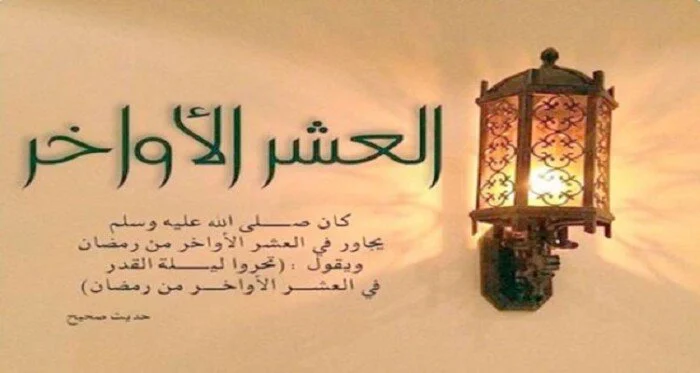 العشر الأواخر
كان صلى الله عليه وسلم
يجاور في العشر الأواخر من رمضان
ويقول : (تحروا ليلة القدر
في العشر الأواخر من رمضان)
حديث صحيح